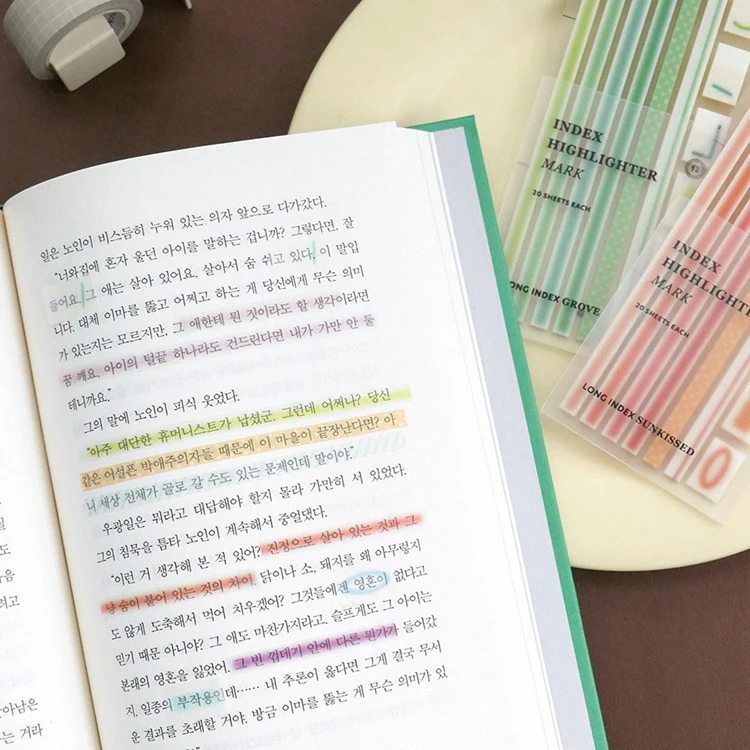 일은 노인이 비스듬히 누워 있는 의자 앞으로 다가갔다.
"너와집에 혼자 울던 아이를 말하는 겁니까? 그렇다면, 잘
들어요. 그 애는 살아 있어요. 살아서 숨 쉬고 있다. 이 말입
니다. 대체 이마를 뚫고 어쩌고 하는 게 당신에게 무슨 의미
가 있는지는 모르지만, 그 애한테 뭔 짓이라도 할 생각이라면
꿈 깨요. 아이의 털끝 하나라도 건드린다면 내가 가만 안 둘
테니까요."
그의 말에 노인이 피식 웃었다.
"아주 대단한 휴머니스트가 납셨군. 그런데 어쩌나? 당신
같은 어설픈 박애주의자들 때문에 이 마을이 끝장난다면? 아
니 세상 전체가 골로 갈 수도 있는 문제인데 말이야."
우광일은 뭐라고 대답해야 할지 몰라 가만히 서 있었다.
그의 침묵을 틈타 노인이 계속해서 중얼댔다.
"이런 거 생각해 본 적 있어? 진정으로 살아 있는 것과 그
냥 숨이 붙어 있는 것의 차이. 닭이나 소, 돼지를 왜 아무렇지
도 않게 도축해서 먹어 치우겠어? 그것들에겐 영혼이 없다고
믿기 때문 아니야? 그 애도 마찬가지라고. 슬프게도 그 아이는
본래의 영혼을 잃었어. 그 빈 껍데기 안에 다른 뭔가가 들어갔
지. 일종의 부작용인데…… 내 추론이 옳다면 그게 결국 무서
운 결과를 초래할 거야. 방금 이마를 뚫는 게 무슨 의미가 있
INDEX
HIGHLIGHTER
MARK
20 SHEETS EACH
LONG INDEX GROVE
INDEX
HIGHLIGHTER
MARK
20 SHEETS EACH
LONG INDEX SUNKISSED